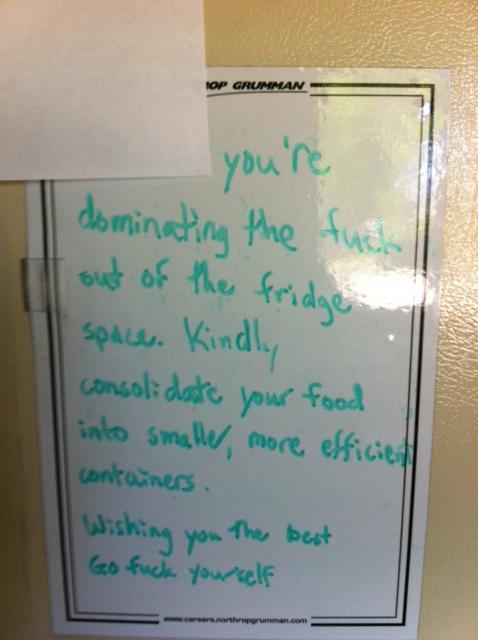 OP GRUMMAN
you're
dominating the fuck
out of the fridge
space. Kindly
consolidate your food
into smaller, more efficient
containers.
Wishing you the best
Go fuck yourself
www.careers.northropgrumman.com